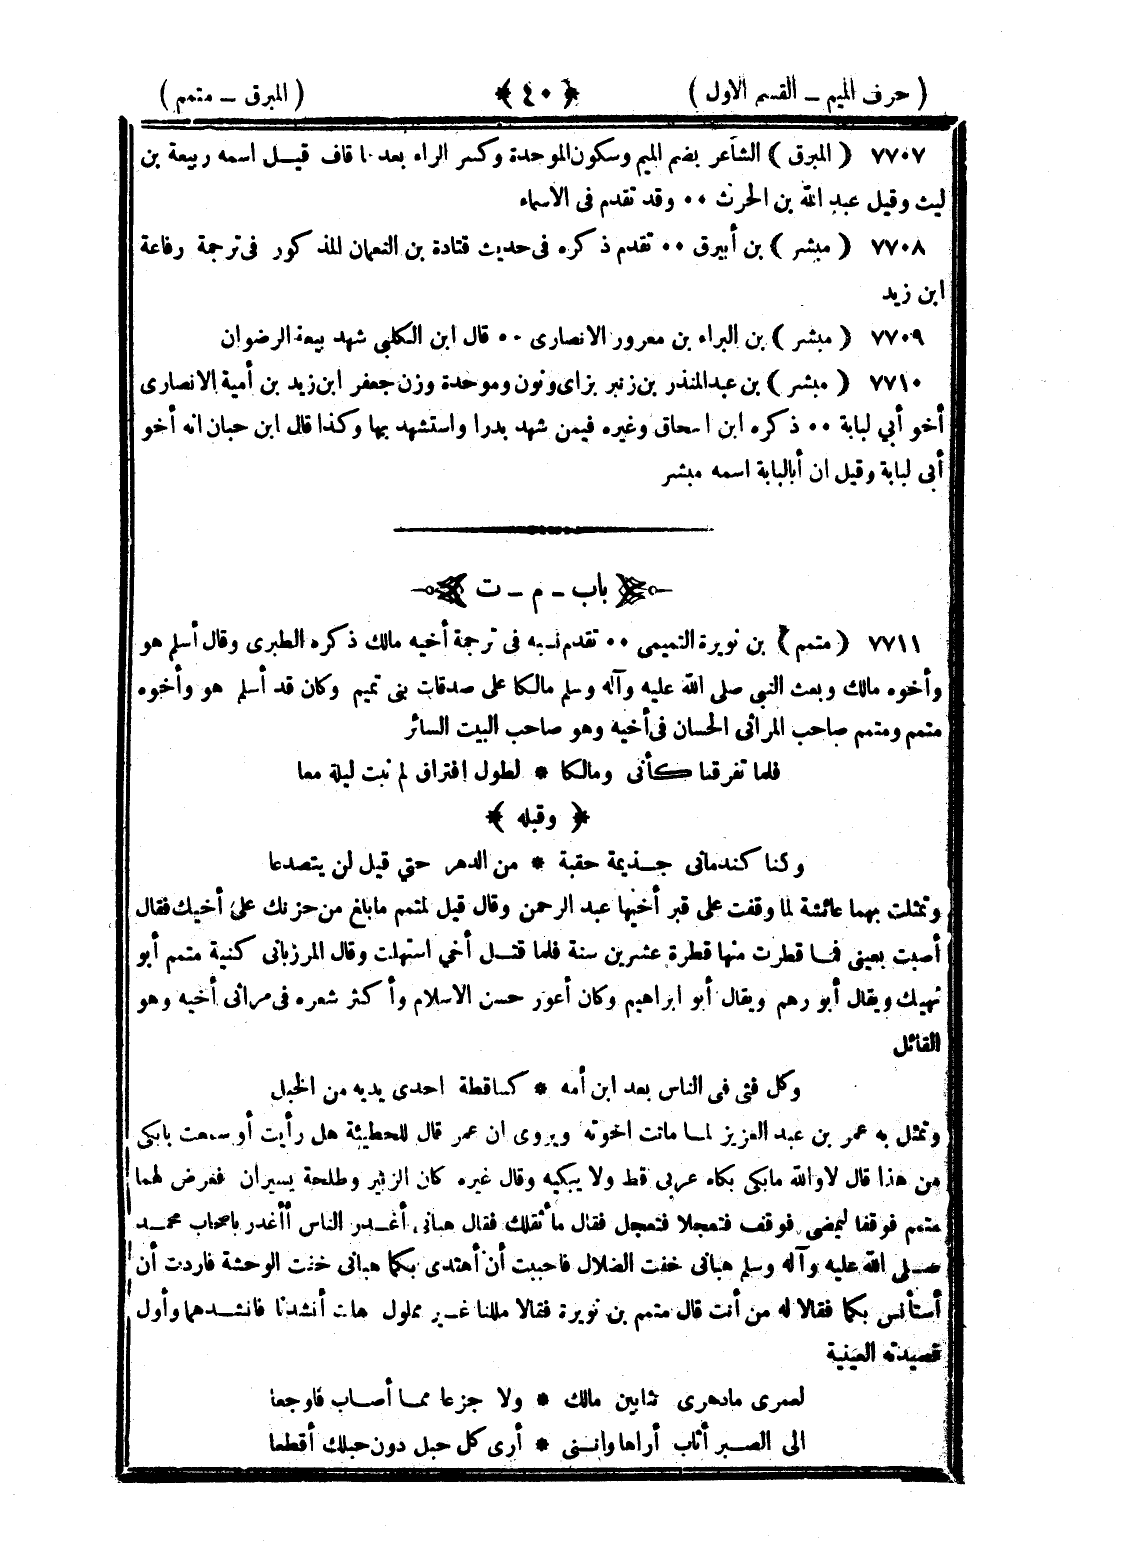 ( حرف الميم ــ القسم الاول ) ﴿ ٤٠ ﴾ ( المبرق ــ متمم )
٧٧٠٧ ( المبرق ) الشاعر بضم الميم وسكون الموحدة وكسر الراء بعدها قاف قيــل اسمه ربيعة بن
ليث وقيل عبد الله بن الحرث ٠٠ وقد تقدم فى الاسماء
٧٧٠٨ ( مبشر ) بن أبيرق ٠٠ تقدم ذكره فى حديث قتادة بن النعمان المذكور فى ترجمة رفاعة
ابن زيد
٧٧٠٩ ( مبشر ) بن البراء بن معرور الانصارى ٠٠ قال ابن الكلبي شهد بيعة الرضوان
٧٧١٠ ( مبشر ) بن عبد المنذر بن زنبر بزاى ونون وموحدة وزن جعفر ابن زيد بن أمية الانصارى
أخو أبي لبابة ٠٠ ذكره ابن اسحاق وغيره فيمن شهد بدرا واستشهد بها وكذا قال ابن حبان انه أخو
أبى لبابة وقيل ان أبالبابة اسمه مبشر
باب ــ م ــ ت
٧٧١١ ( متمم ) بن نويرة التميمى ٠٠ تقدم نسبه فى ترجمة أخيه مالك ذكره الطبرى وقال أسلم هو
وأخوه مالك وبعث النبي صلى الله عليه وآله وسلم مالكا على صدقات بنى تميم وكان قد أسلم هو وأخوه
متمم ومتمم صاحب المراثى الحسان فى أخيه وهو صاحب البيت السائر
فلما تفرقنا كأنى ومالكا * لطول افتراق لم نبت ليلة معا
﴿ وقبله ﴾
وكنا كندمانى جــذيمة حقبة * من الدهر حتي قيل لن يتصدعا
وتمثلت بهما عائشة لما وقفت على قبر أخيها عبد الرحمن وقال قيل لمتمم مابلغ من حزنك على أخيك فقال
أصبت بعينى فمــا قطرت منها قطرة عشرين سنة فلما قتــل أخي استهلت وقال المرزبانى كنية متمم أبو
نهيك ويقال أبو رهم ويقال أبو ابراهيم وكان أعور حسن الاسلام وأكثر شعره فى مراثى أخيه وهو
القائل
وكل فتى فى الناس بعد ابن أمه * كساقطة احدى يديه من الخبل
وتمثل به عمر بن عبد العزيز لمــا ماتت اخوته ويروى ان عمر قال للحطيئة هل رأيت أو سمعت بابكى
من هذا قال لا والله مابكى بكاء عربى قط ولا يبكيه وقال غيره كان الزبير وطلحة يسيران فعرض لهما
متمم فوقفا ليمضى فوقف فتعجلا فتعجل فقال ما أثقلك فقال هبانى أغــدر الناس أأغدر باصحاب محمــد
صــلى الله عليه وآله وسلم هبانى خفت الضلال فاحببت أن أهتدى بكما هبانى خفت الوحشة فاردت أن
أستأنس بكما فقالا له من أنت قال متمم بن نويرة فقالا مللنا غــير مملول هات أنشدنا فانشــدهما وأول
قصيدته العينية
لعمرى مادهرى بتابين مالك * ولا جزعا ممــا أصــاب فاوجعا
الى الصــبر أثاب أراها واننى * أرى كل حبل دون حبلك أقطعا